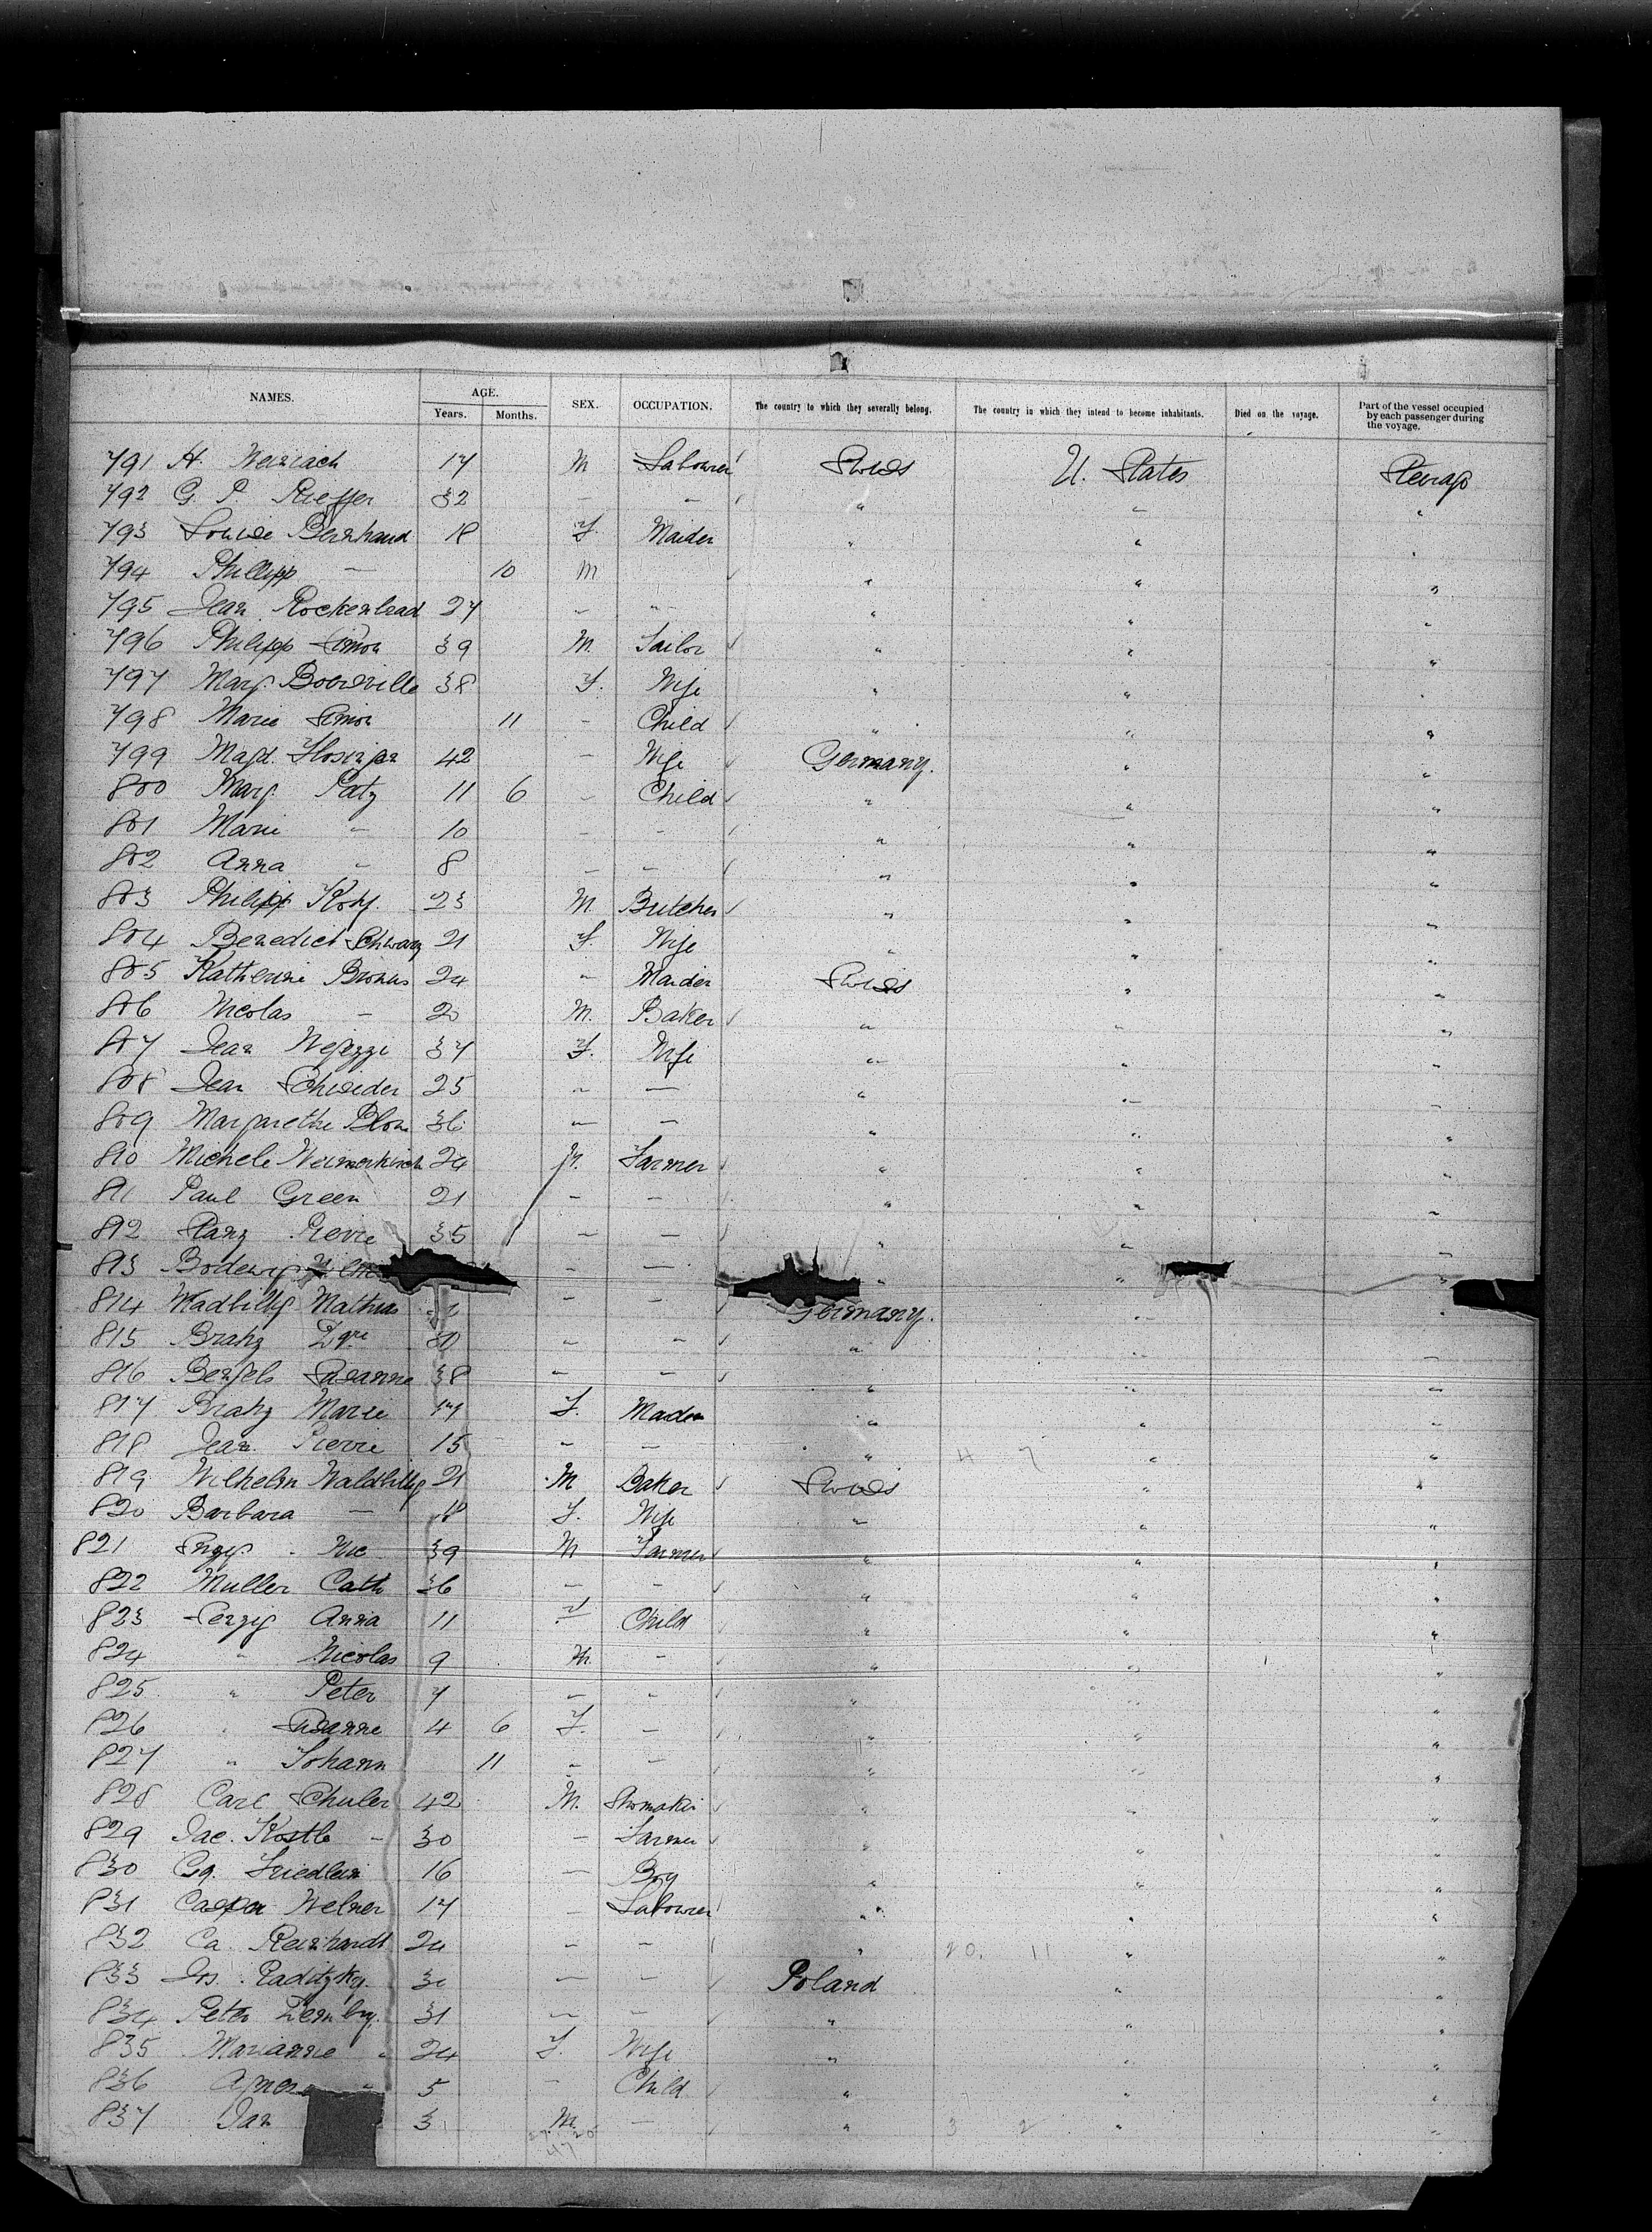 NAMES. AGE. SEX. OCCUPATION. The country to which they severally belong. The country in which they intend to become inhabitants. Died on the voyage. Part of the vessel occupied by each passenger during the voyage.
Years. Months.
791 H. Weiriach 17 M Labourer Swiss U. States Steerage
792 G. P. Rieffer 32 — — " — "
793 Louise Bernhard 18 F. Maiden " " "
794 Philipp — 10 M " " "
795 Jean Rockenbrad 27 — — " " "
796 Philipp Simon 39 M. Tailor " " "
797 Marg. 38 F. Wife " " "
798 Marie Simon 11 - Child " " "
799 Magd. 42 — Wife Germany. " "
800 Marg. Patz 11 6 - Child " " "
801 Marie " 10 - - " " "
802 Anna " 8 - - " " "
803 Philipp 23 M. Butcher " " "
804 Benedict Schwarz 21 F. Wife " " "
805 Katherine Bronus 24 - Maiden Swiss " "
806 Nicolas — 20 M. Baker " " "
807 Jean 37 F. Wife " " "
808 Jean Schneider 25 - — " " "
809 Margarethe Blom 36 - — " " "
810 Michele Weimerkirch 24 M. Farmer " " "
811 Paul Green 21 - - " " "
812 Pierre 35 - — " " "
813 - — " " "
814 Wadbillig Mathias - - Germany. " "
815 Brahz - - " " "
816 Susanne 38 - — " " "
817 Brahz Marie 17 F. Maiden " " "
818 Jean Pierre 15 - — " " "
819 Wilhelm Waldbillig 21 M Baker Swiss " "
820 Barbara — 18 F. Wife " " "
821 Nic 39 M Farmer " " "
822 Muller Cath 36 — - " " "
823 Anna 11 F Child " " "
824 " Nicolas 9 M. - " " "
825 " Peter 7 - - " " "
826 " Susanne 4 6 F. — " " "
827 " Johann 11 - — " " "
828 Carl Schuler 42 M. Shomaker " " "
829 Jac. Kostle 30 — Farmer " " "
830 Gg. Friedlein 16 — Boy " " "
831 Caspar Welner 17 - Labourer " " "
832 Ca. Reinhardt 24 - - " " "
833 Jos. Raditzky. 30 — — Poland " "
834 Peter 31 — — " " "
835 Marianne " 24 F. Wife " " "
836 Agnes " 5 - Child " " "
837 Jan 3 M. — " " "
27 20
47